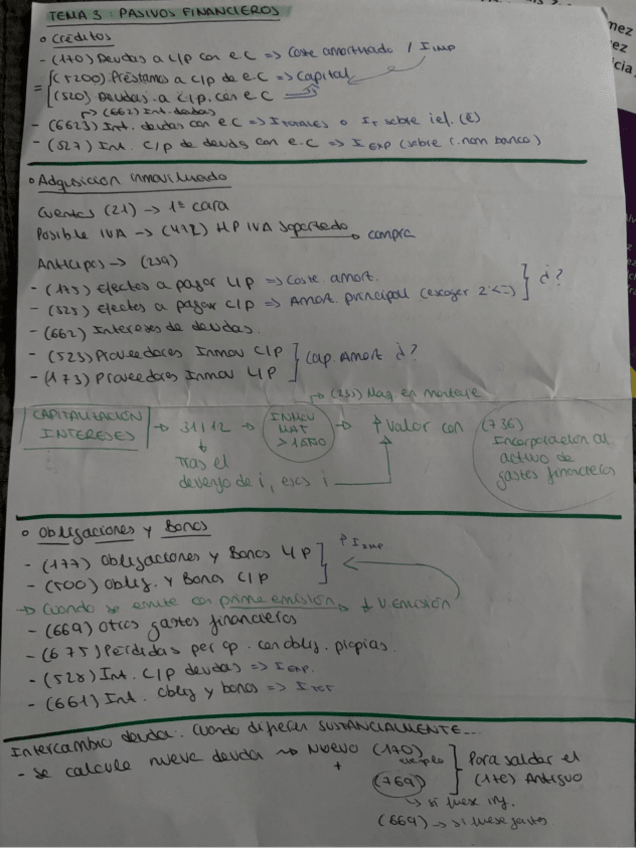 TEMA 3: PASIVOS FINANCIEROS
o Créditos
- (170) Deudas a L/P con e.c => Coste amortizado / I IMP
= (5200) Préstamos a C/P de e.c => Capital
(520) Deudas a C/P. con e.c
→ (662) Int. deudas
- (6623) Int. deudas con e.c => I TOTALES o IT sobre ief. (e)
- (527) Int. C/P de deudas con e.c => I EXP (sobre i. nom banco)
o Adquisición inmovilizado
Cuentas (21) → 1ª cara
Posible IVA → (472) HP IVA Soportado → compra
Anticipos → (239)
- (175) Efectos a pagar L/P => Coste. amort.
- (525) Efectos a pagar C/P => Amort. principal (escoger 2ª <=) } ¿?
- (662) Intereses de deudas.
- (523) Proveedores Inmov C/P
- (173) Proveedores Inmov L/P } Cap. Amort ¿?
→ (233) Maq. en montaje
CAPITALIZACIÓN INTERESES → 31/12 → INMOV MAT > 1 AÑO → ↑ Valor con (736)
Incorporación al
activo de
gastos financieros
↓ Tras el
devengo de i, esos i
o Obligaciones y Bonos
- (177) Obligaciones y Bonos L/P
- (500) Oblig. y Bonos C/P
→ Cuando se emite con prima emisión → ↓ V. Emisión
- (669) Otros gastos financieros
- (675) Pérdidas per op. con oblig. propias.
- (528) Int. C/P deudas => I EXP.
- (661) Int. oblig y bonos => I TOT
Intercambio deuda: Cuando difieren SUSTANCIALMENTE...
- Se calcula nueva deuda → Nuevo (170) ejemplo
+
(769)
Para saldar el
(170) Antiguo
→ si fuese ing.
(669) → si fuese gasto